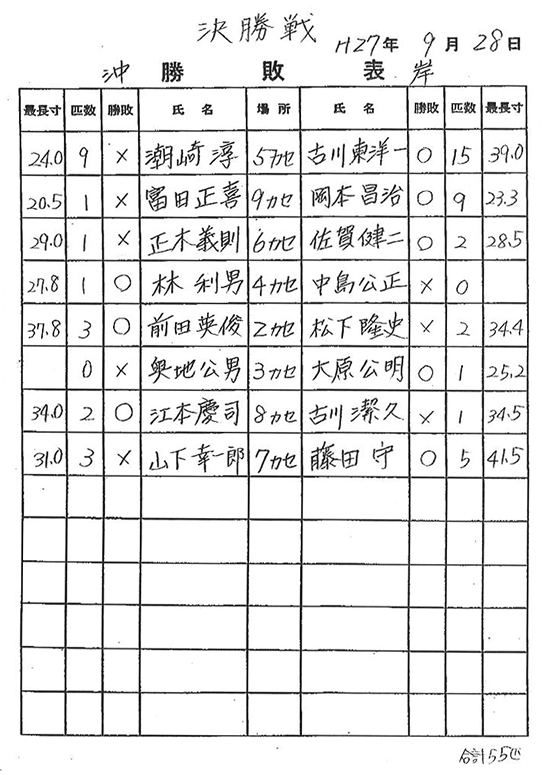 決勝戦
H27年 9月 28日
沖 勝敗表 岸
最長寸 匹数 勝敗 氏名 場所 氏名 勝敗 匹数 最長寸
24.0 9 × 潮﨑淳 5カセ 古川東洋一 ○ 15 39.0
20.5 1 × 富田正喜 9カセ 岡本昌治 ○ 9 23.3
29.0 1 × 正木義則 6カセ 佐賀健二 ○ 2 28.5
27.8 1 ○ 林利男 4カセ 中島公正 × 0
37.8 3 ○ 前田英俊 2カセ 松下隆史 × 2 34.4
0 × 奥地公男 3カセ 大原公明 ○ 1 25.2
34.0 2 ○ 江本慶司 8カセ 古川潔久 × 1 34.5
31.0 3 × 山下幸一郎 7カセ 藤田守 ○ 5 41.5
合計55匹